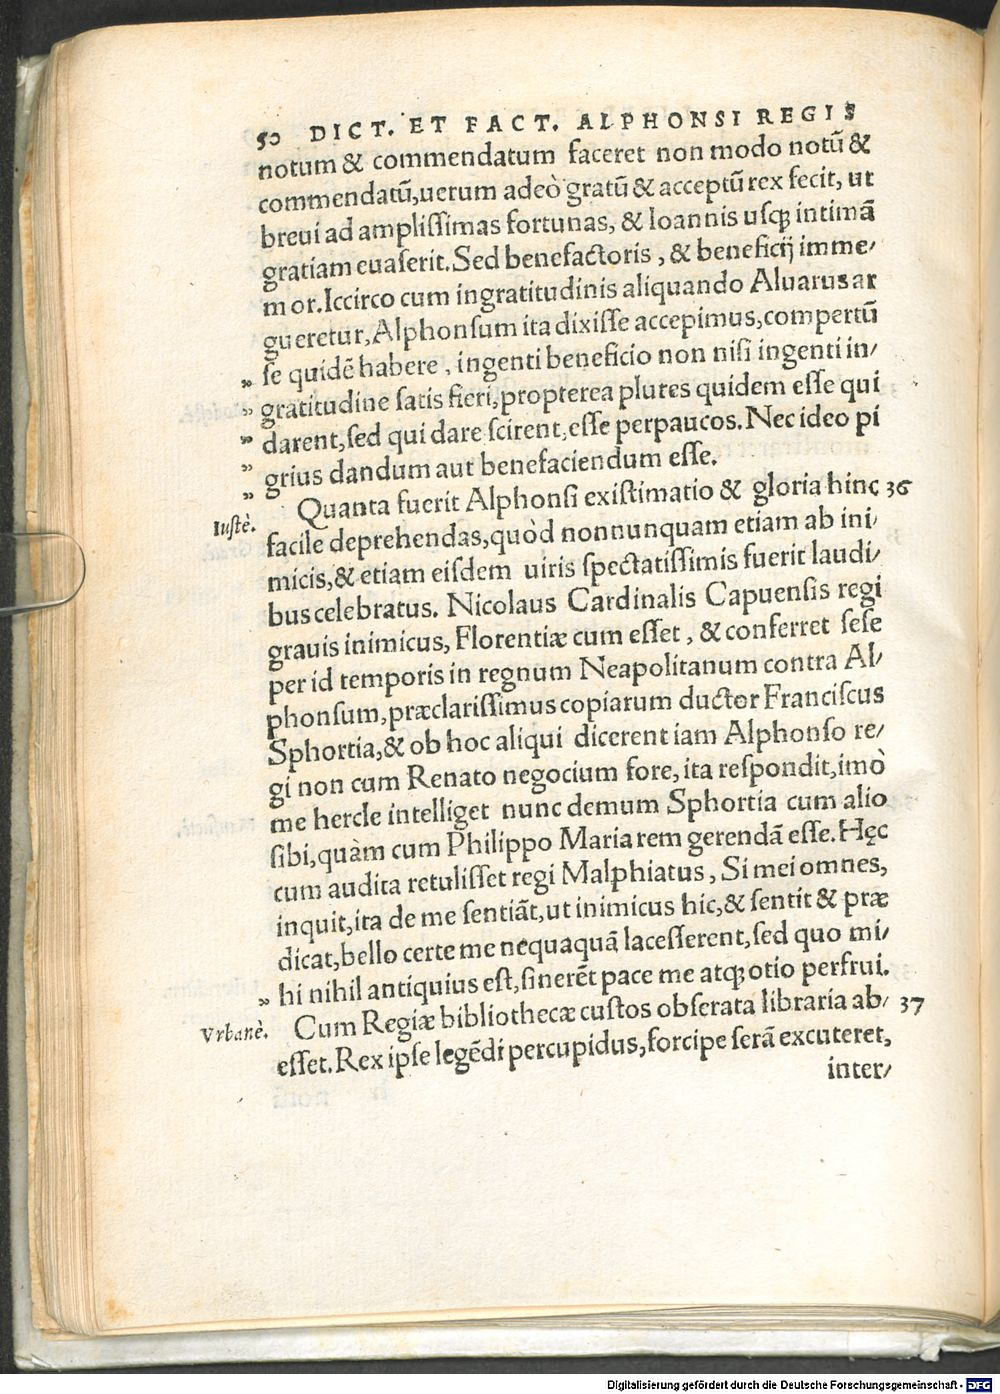 50 DICT. ET FACT. ALPHONSI REGIS
notum & commendatum faceret non modo notũ &
commendatũ,uerum adeò gratũ & acceptũ rex fecit, ut
breui ad amplißimas fortunas, & Ioannis usqꝫ intimã
gratiam euaserit.Sed benefactoris , & beneficij imme/
mor.Iccirco cum ingratitudinis aliquando Aluarus ar
gueretur,Alphonsum ita dixisse accepimus,compertũ
„ se quidẽ habere , ingenti beneficio non nisi ingenti in/
„ gratitudine satis fieri,propterea plures quidem esse qui
„ darent,sed qui dare scirent,esse perpaucos.Nec ideo pi
„ grius dandum aut benefaciendum esse.
„ Quanta fuerit Alphonsi existimatio & gloria hinc 36
Iustè. facile deprehendas,quòd nonnunquam etiam ab ini/
micis,& etiam eisdem uiris spectatißimis fuerit laudi/
bus celebratus. Nicolaus Cardinalis Capuensis regi
grauis inimicus, Florentiæ cum esset , & conferret sese
per id temporis in regnum Neapolitanum contra Al/
phonsum,præclarißimus copiarum ductor Franciscus
Sphortia,& ob hoc aliqui dicerent iam Alphonso re/
gi non cum Renato negocium fore, ita respondit,imò
me hercle intelliget nunc demum Sphortia cum alio
sibi,quàm cum Philippo Maria rem gerendã esse.Hęc
cum audita retulisset regi Malphiatus , Si mei omnes,
inquit,ita de me sentiãt,ut inimicus hic,& sentit & præ
dicat,bello certe me nequaquã lacesserent,sed quo mi/
„ hi nihil antiquius est,sinerẽt pace me atqꝫ otio perfrui.
Vrbanè. Cum Regiæ bibliothecæ custos obserata libraria ab/ 37
esset.Rex ipse legẽdi percupidus,forcipe serã excuteret,
inter/
Digitalisierung gefördert durch die Deutsche Forschungsgemeinschaft - DFG